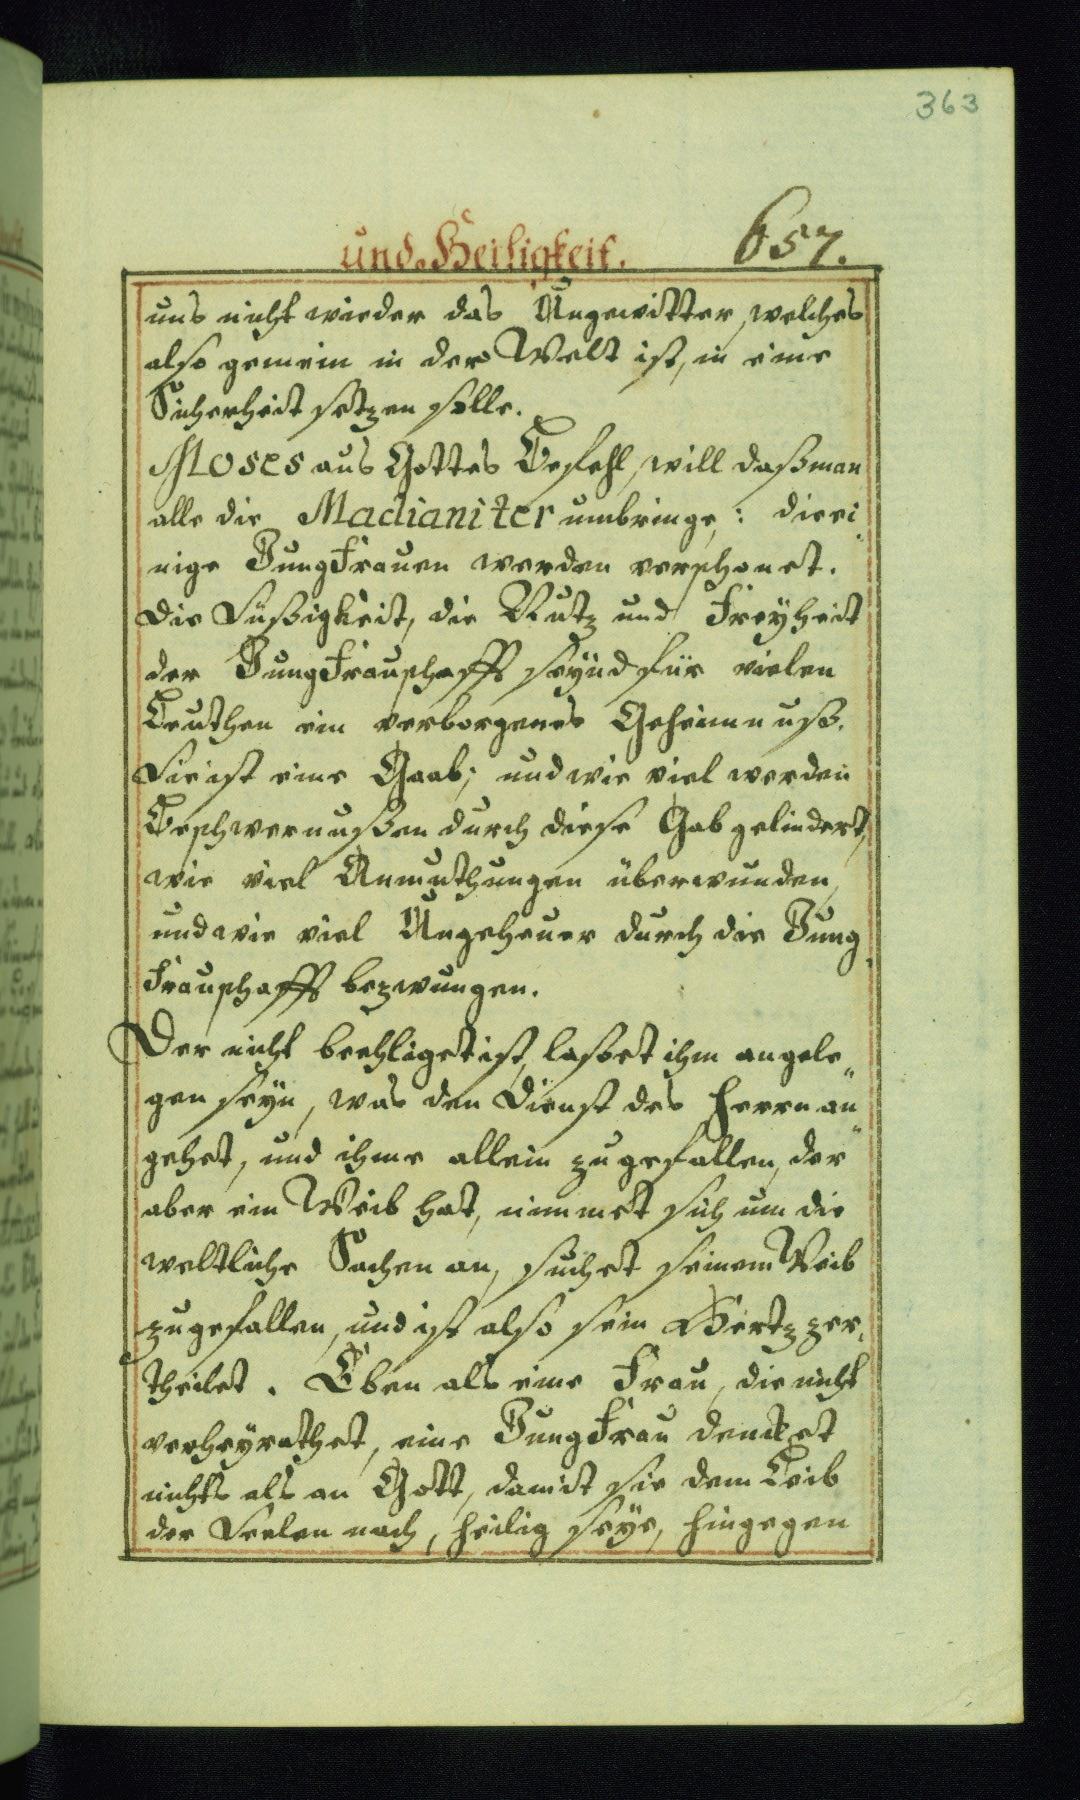 363
und Heiligkeit. 657.
uns nicht wieder das Ungewitter, welches
also gemein in der Welt ist, in eine
Sicherheit setzen solle.
Moses aus Gottes Befehl, will daß man
alle die Madianiter umbringe,: die ei„
nige Jungfrauen werden verschonet.
Die Süßigkeit, die Nutz und Freyheit
der Jungfrauschafft seynd für vielen
Leuthen ein verborgenes Geheimnuß.
Sie ist eine Gaab; und wie viel werden
Beschwernußen durch diese Gab gelindert,
wie viel Anmuthungen überwunden,
und wie viel Ungeheuer durch die Jung„
frauschafft bezwungen.
Der nicht beehliget ist, laßet ihm angele„
gen seyn, was den Dienst des Herrn an„
gehet, und ihme allein zu gefallen, der
aber ein Weib hat, nimmet sich um die
weltliche Sachen an, suchet seinem Weib
zugefallen, und ist also sein Hertz zer„
theilet. Eben als eine Frau, die nicht
verheyrathet, eine Jungfrau dencket
nichts als an Gott, damit sie dem Leib
der Seelen nach, heilig seye, hingegen